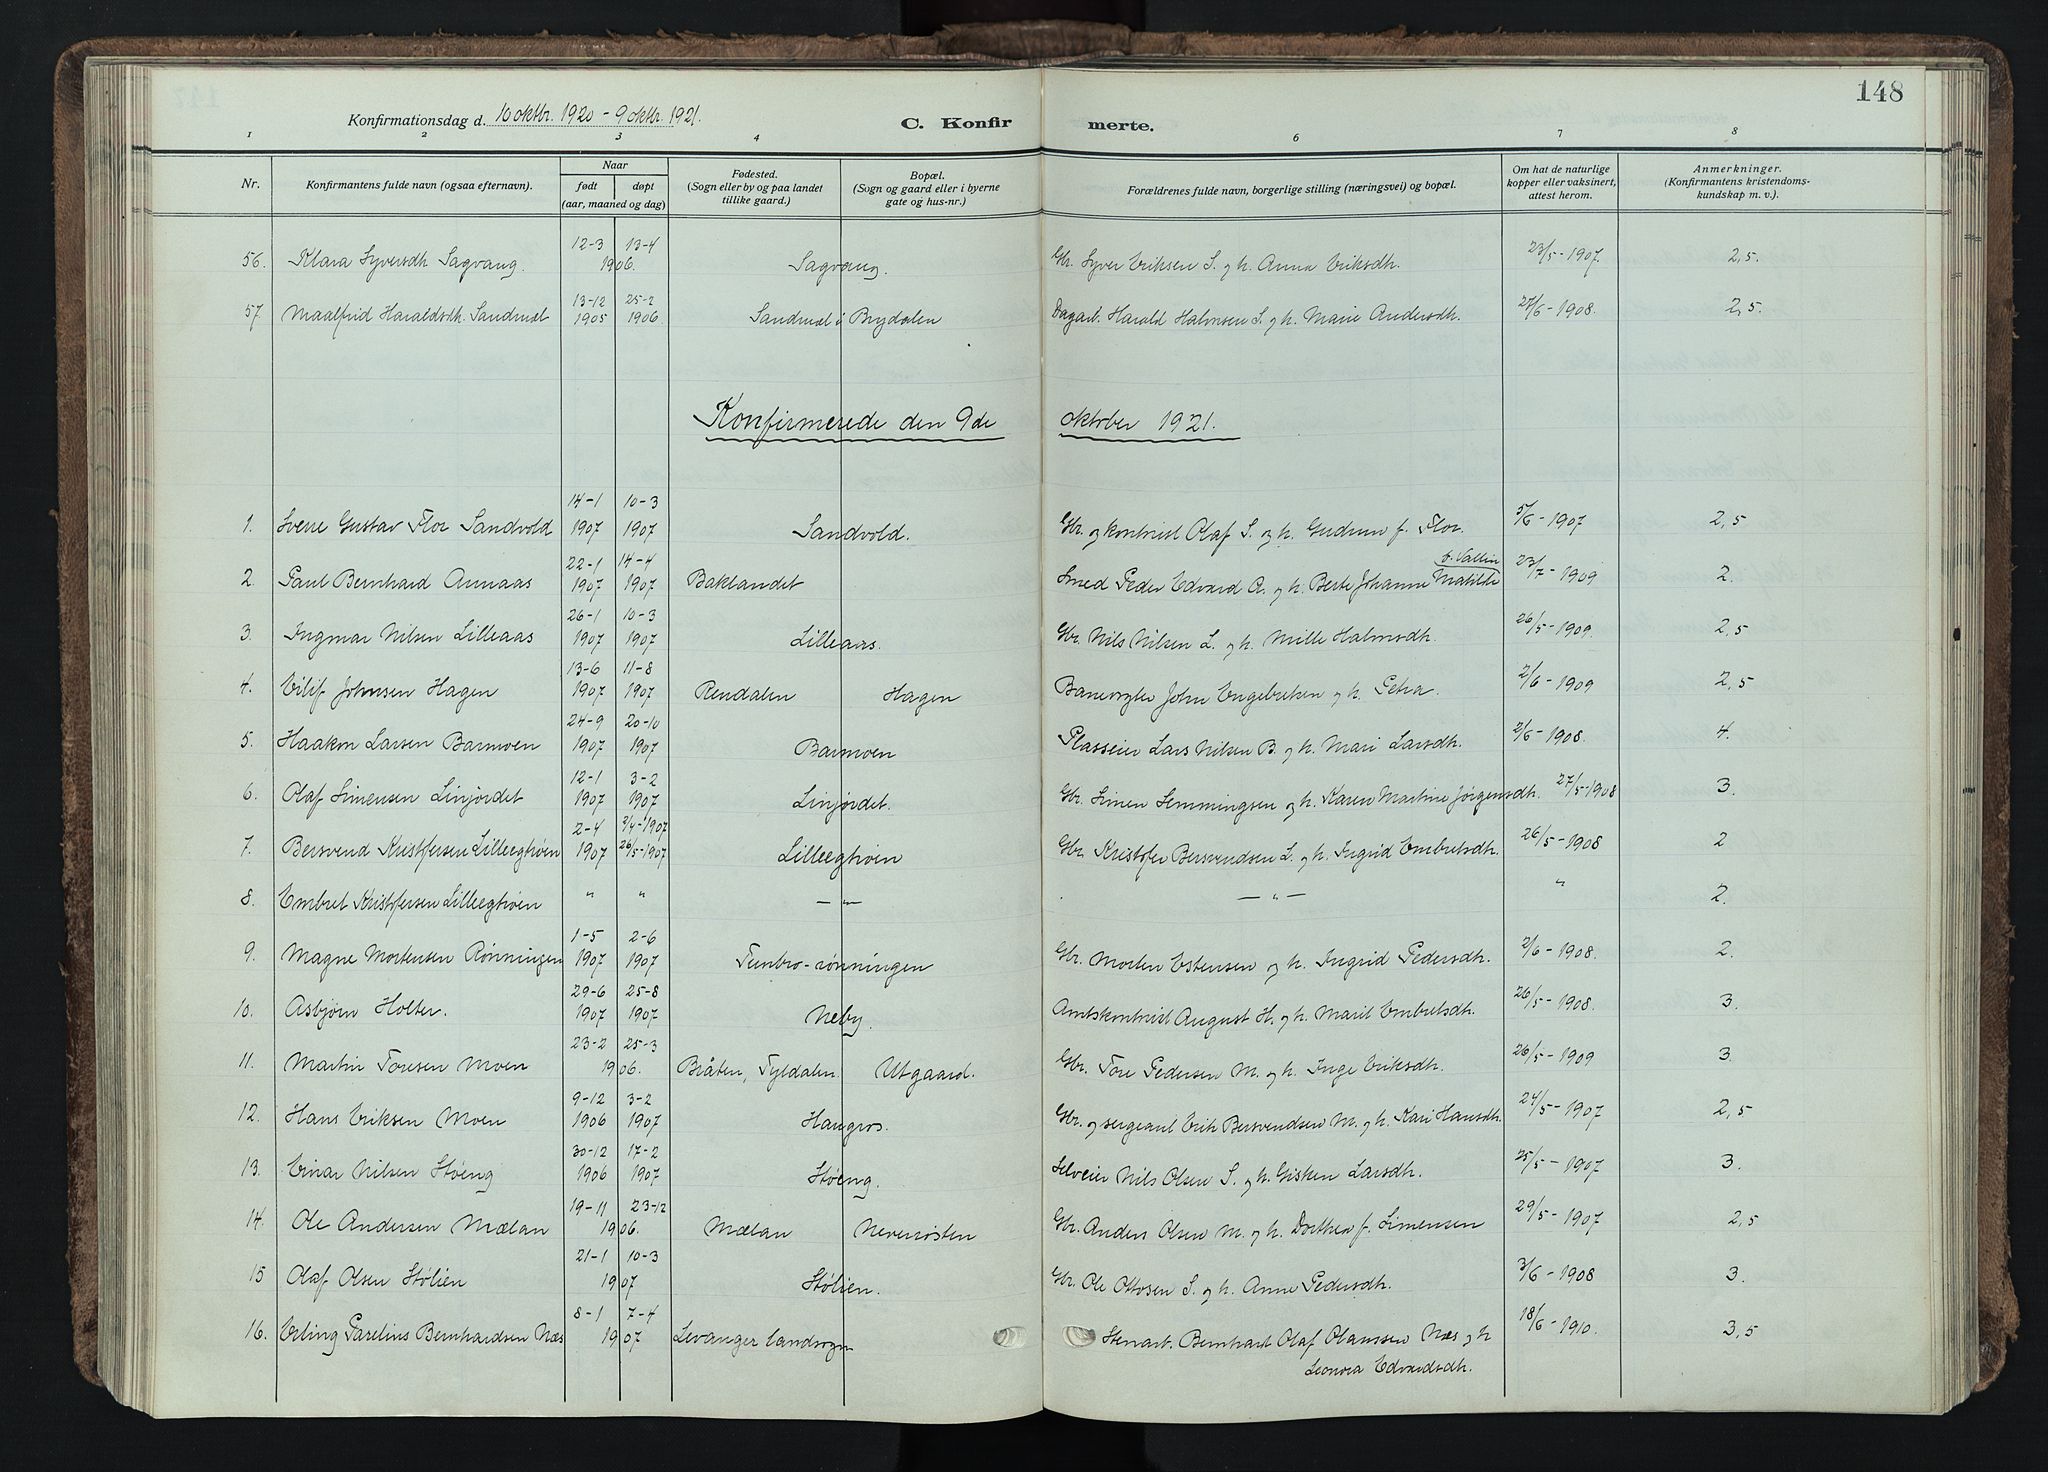 148
Konfirmationsdag d. 10 oktbr. 1920 - 9 oktbr. 1921.
C. Konfirmerte.
1 2 3 4 6 7 8
Nr. Konfirmantens fulde navn (ogsaa efternavn). Naar født døpt (aar, maaned og dag) Fødested. (Sogn eller by og paa landet tillike gaard.) Bopæl. (Sogn og gaard eller i byerne gate og hus-nr.) Forældrenes fulde navn, borgerlige stilling (næringsvei) og bopæl. Om hat de naturlige kopper eller vaksinert, attest herom. Anmerkninger. (Konfirmantens kristendoms-kundskap m. v.).
56. Klara Syversdh. Sagvang. 12-3 13-4 1906. Sagvang. Gbr. Syver Eriksen S. og h. Anna Eriksdh. 23/5-1907. 2,5.
57 Maalfrid Haraldsdh. Sandmæl 13-12 1905 25-2 1906. Sandmæl i Brydalen Dagarb. Harald Halvorsen S. og h. Marie Andersdh. 27/6-1908. 2,5.
Konfirmerede den 9de oktober 1921.
1. Sverre Gustav Flor Sandvold 14-1 1907 10-3 1907 Sandvold. Gbr. og kontorist Olaf S. og h. Gudrun f. Flor. 5/6-1907 2,5
2. Paul Bernhard Aunaas 22-1 1907 14-4 1907 Baklandet Smed Peder Edvard A. og h. Berte Johanne Matilde f. Vallin 23/7-1909 2.
3. Ingmar Nilsen Lilleaas 26-1 1907 10-3 1907 Lilleaas. Gbr. Nils Nilsen L. og h. Mille Halvorsdh. 26/5-1909. 2,5
4. Eilif Johnsen Hagen 13-6 1907 11-8 1907 Rendalen Hagen Banevogter John Engebretsen og h. Petra. 2/6-1909 2,5
5. Haakon Larsen Barmoen 24-9 1907 20-10 1907 Barmoen Plasseier Lars Nilsen B. og h. Mari Larsdh. 2/6-1908. 4.
6. Olaf Simensen Linjordet 12-1 1907 3-2 1907 Linjordet. Gbr. Simen Semmingsen og h. Karen Martine Jørgensdh. 27/5-1908 3.
7. Bersvend Kristofersen Lilleegtvéen 2-4 1907 2/4-1907 26/5-1907 Lilleegtvéen Gbr. Kristofer Bersvendsen L. og h. Ingrid Embretsdh. 26/5-1908 2
8. Embret Kristofersen Lilleegtvéen " " — " — — " — " 2.
9. Magne Mortensen Rønningen 1-5 1907 2-6 1907 Tunbro-rønningen Gbr. Morten Estensen og h. Ingrid Pedersdh. 2/6-1908. 2.
10. Asbjørn Holter. 29-6 1907 25-8 1907 Neby. Amtskontorist August H. og h. Marit Embretsdh. 26/5-1908. 3.
11. Martin Toresen Moen 23-2 25-3 1906. Bråten, Tyldalen. Utgaard. Gbr. Tore Pedersen M. og h. Inge Eriksdh. 26/5-1909 3
12. Hans Eriksen Moen 9-12 1906 3-2 1907 Haugros. Gbr. og sergeant Erik Bersvendsen M. og h. Kari Hansdh. 24/5-1907 2,5
13. Einar Nilsen Støeng 30-12 1906 17-2 1907 Støeng. Selveier Nils Olsen S. og h. Gisken Larsdh. 25/5-1907 3.
14. Ole Andersen Mælan 19-11 23-12 1906. Mælan Neverøsten Gbr. Anders Olsen M. og h. Dorthea f. Simensen 29/5-1907 2,5
15 Olaf Olsen Stølien 21-1 10-3 1907 Stølien. Gbr. Ole Ottosen S. og h. Anne Pedersdh. 3/6-1908 3.
16. Erling Parelius Bernhardsen Næs 8-1 7-4 1907 Levanger landsogn Stenarb. Bernhart Olaf Olaussen Næs og h 18/6-1910. 3,5
Leonora Edvardsdh.